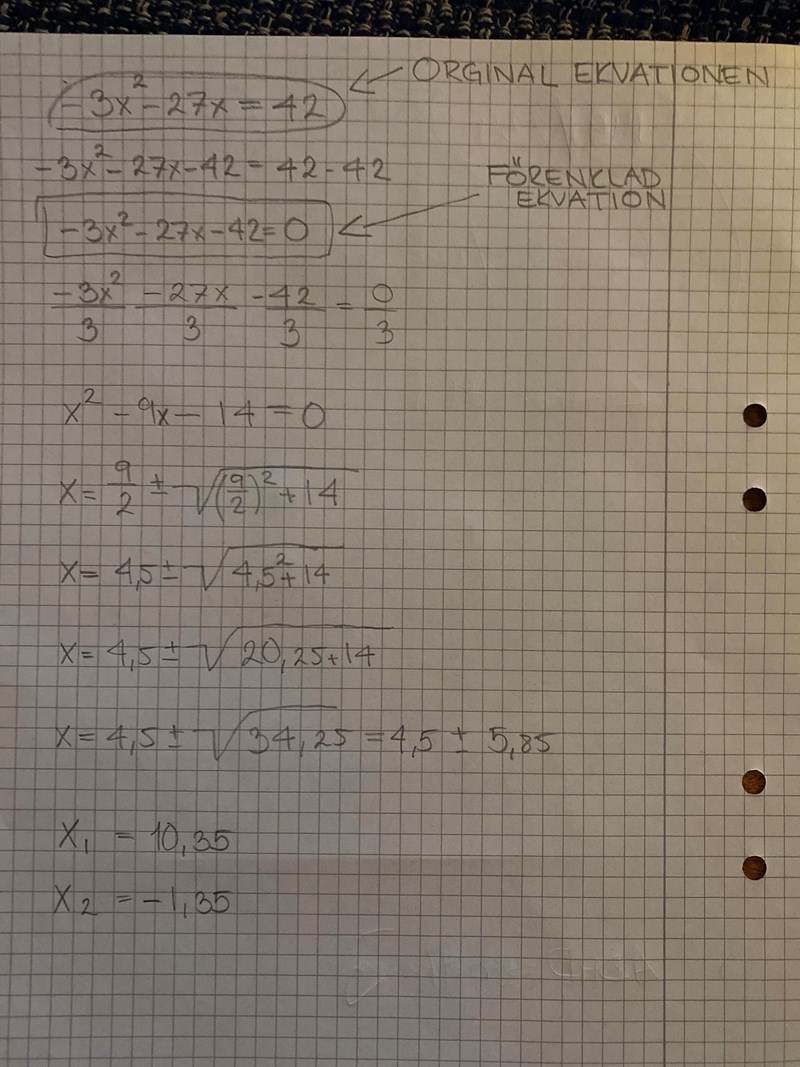 -3x² - 27x = 42 ← ORGINAL EKVATIONEN
-3x² - 27x - 42 = 42 - 42
FÖRENKLAD
EKVATION
-3x² - 27x - 42 = 0 ←
-3x²/3 -27x/3 -42/3 = 0/3
x² - 9x - 14 = 0
x = 9/2 ± √((9/2)² + 14)
x = 4,5 ± √(4,5² + 14)
x = 4,5 ± √(20,25 + 14)
x = 4,5 ± √(34,25) = 4,5 ± 5,85
x₁ = 10,35
x₂ = -1,35